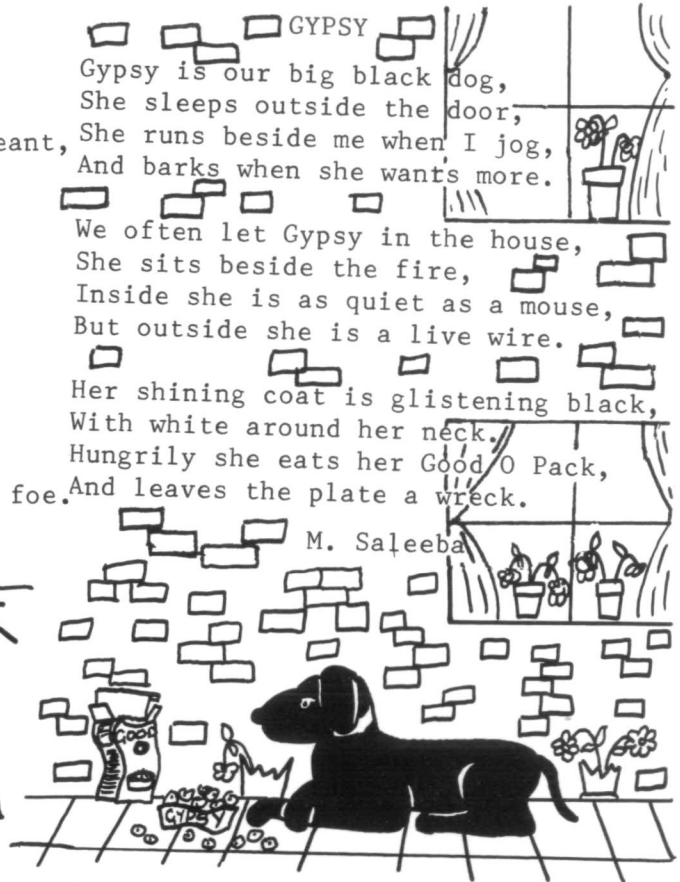 GYPSY
Gypsy is our big black dog,
She sleeps outside the door,
eant,
She runs beside me when I jog,
And barks when she wants more.
We often let Gypsy in the house,
She sits beside the fire,
Inside she is as quiet as a mouse,
But outside she is a live wire.
Her shining coat is glistening black,
With white around her neck.
Hungrily she eats her Good O Pack,
foe.
And leaves the plate a wreck.
M. Saleeba
GOOD
O
GYPSY